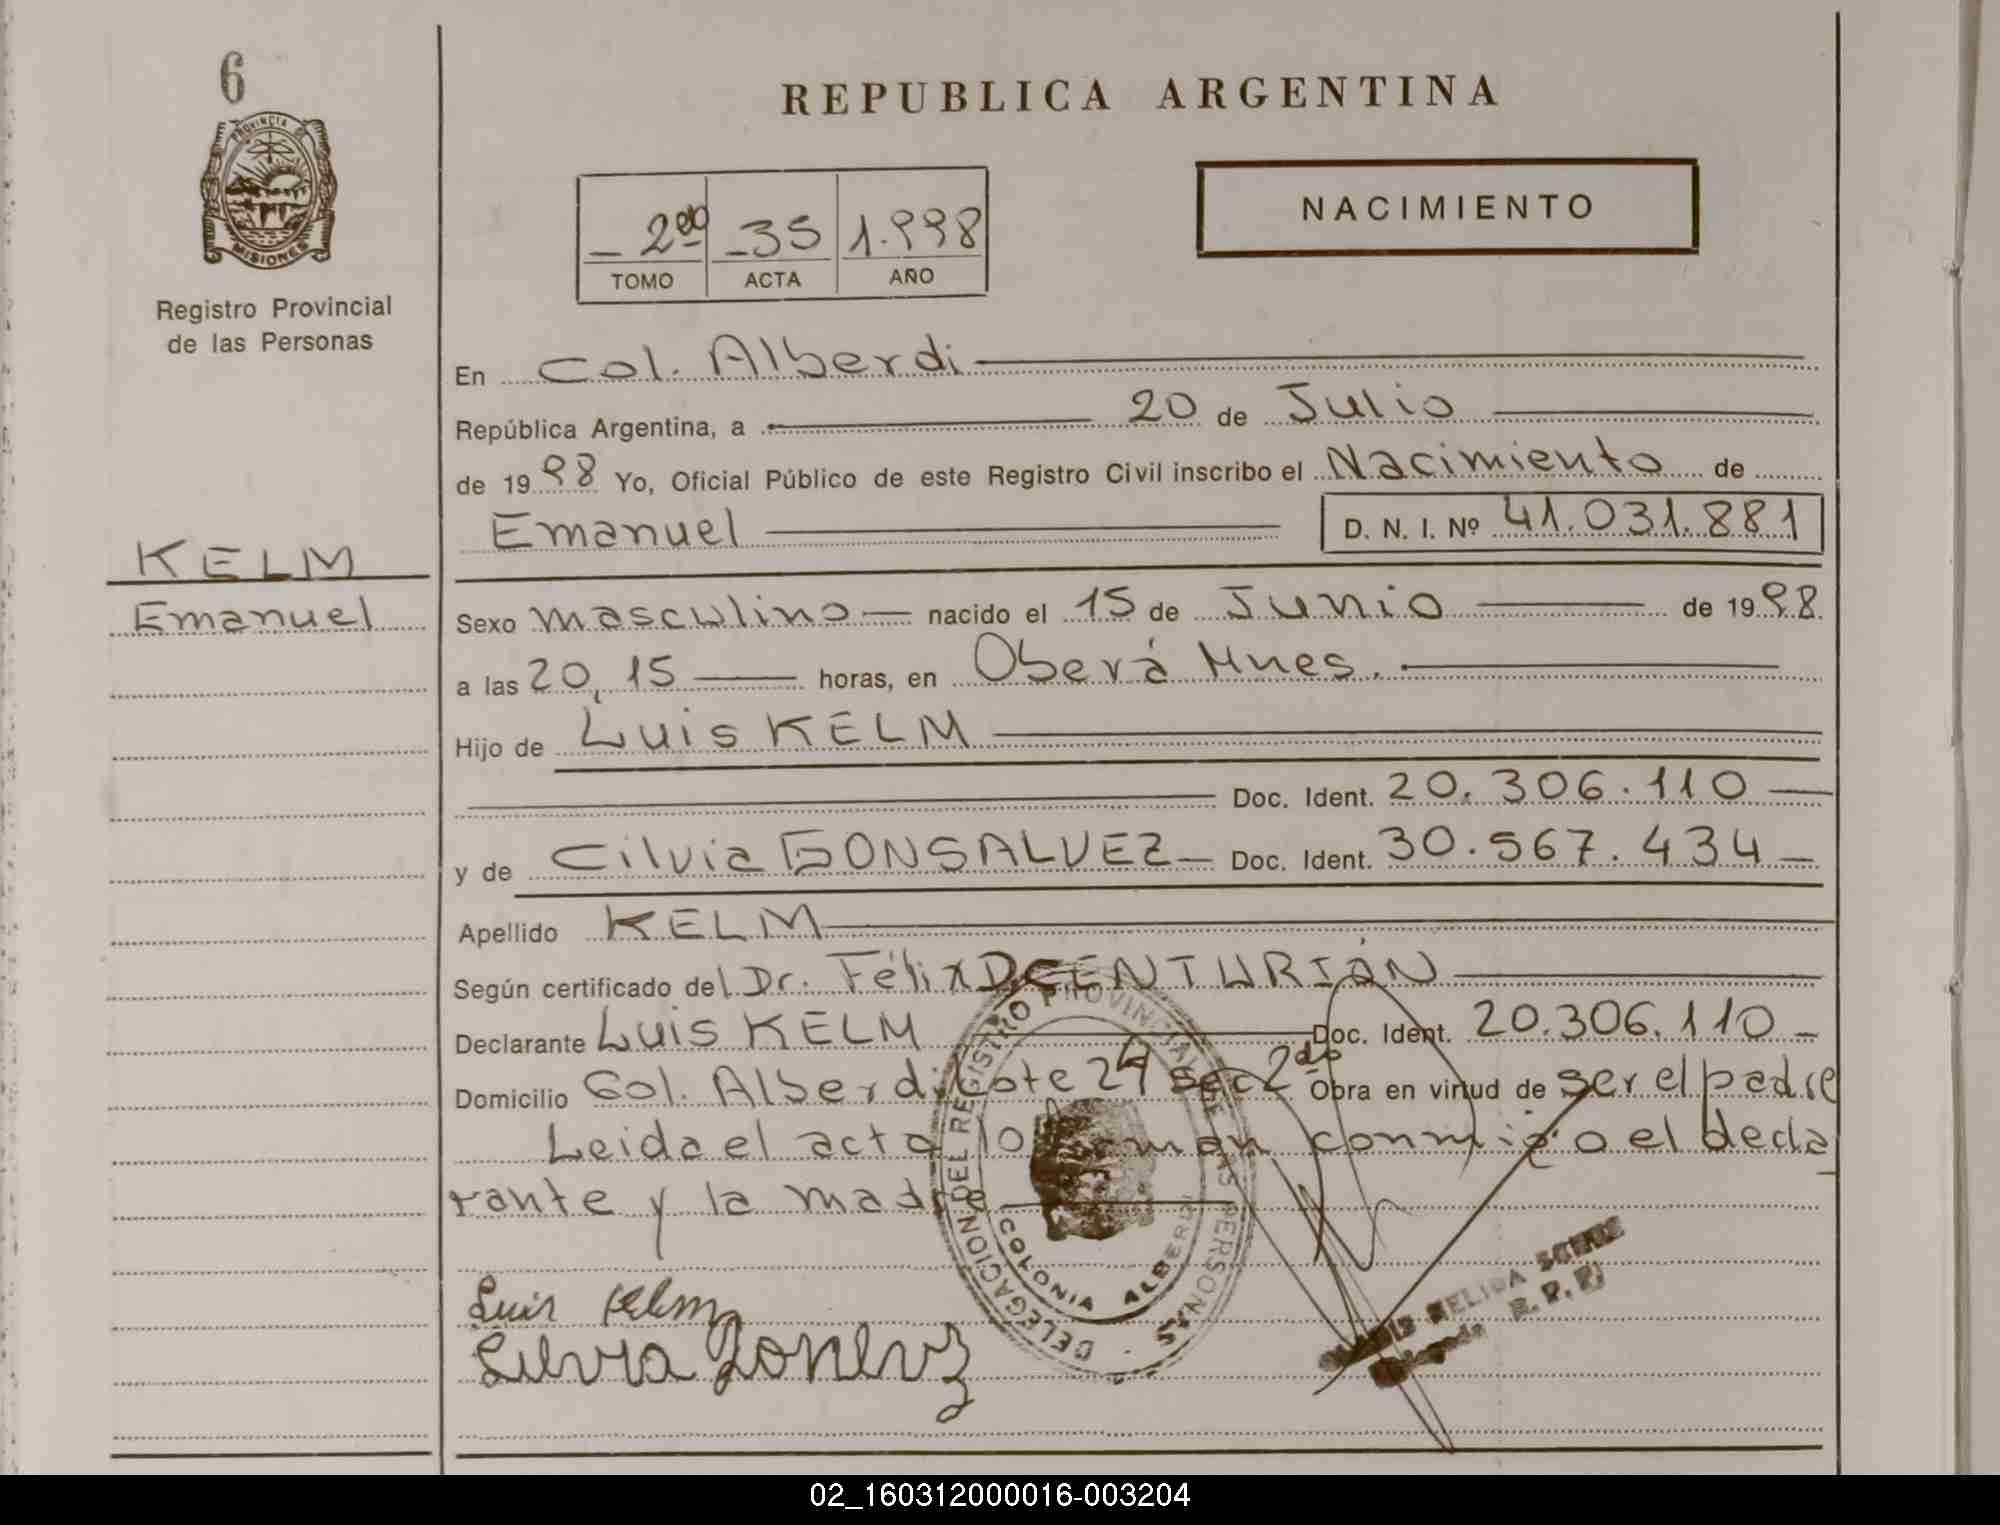 6
PROVINCIA DE
MISIONES
Registro Provincial
de las Personas
KELM
Emanuel
REPUBLICA ARGENTINA
2do 35 1.998
TOMO ACTA AÑO
NACIMIENTO
En Col. Alberdi
República Argentina, a 20 de Julio
de 1998 Yo, Oficial Público de este Registro Civil inscribo el Nacimiento de
Emanuel D. N. I. Nº 41.031.881
Sexo masculino nacido el 15 de Junio de 1998
a las 20,15 horas, en Oberá Mnes.
Hijo de Luis KELM
Doc. Ident. 20.306.110
y de Cilvia GONSALVEZ Doc. Ident. 30.567.434
Apellido KELM
Según certificado del Dr. Félix D. CENTURIÁN
Declarante Luis KELM Doc. Ident. 20.306.110
Domicilio Col. Alberdi Lote 24 sec 2da Obra en virtud de ser el padre
Leida el acta lo firman conmigo el decla
rante y la madre
DELEGACION DEL REGISTRO PROVINCIAL DE LAS PERSONAS
COLONIA ALBERDI
Luis Kelm
Silvia
NELIDA
Delegada R. P. P.
02_160312000016-003204